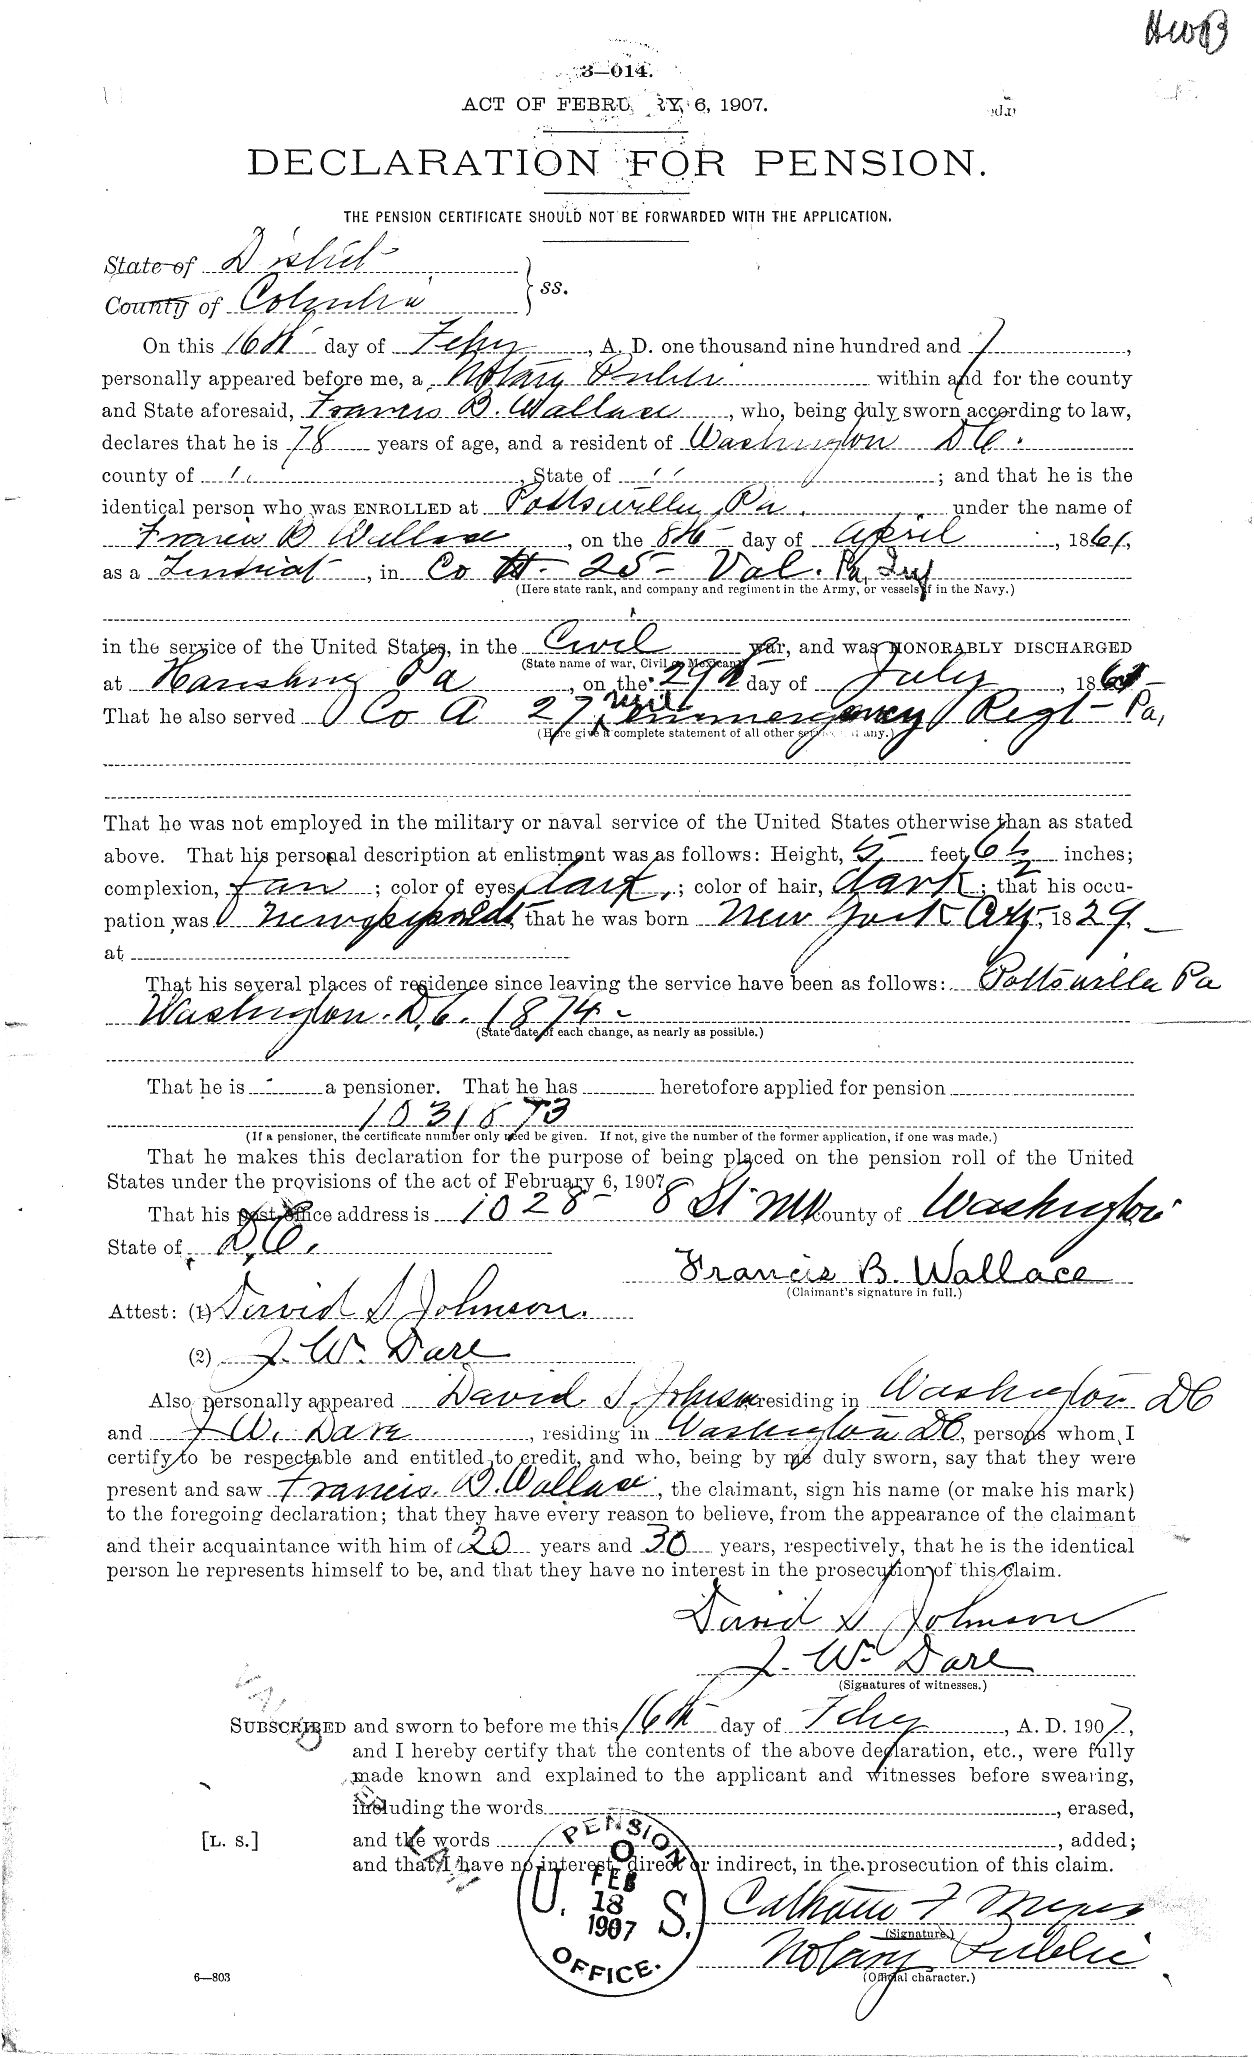 HWB
3—014.
ACT OF FEBRU RY 6, 1907.
DECLARATION FOR PENSION.
THE PENSION CERTIFICATE SHOULD NOT BE FORWARDED WITH THE APPLICATION.
State of District
County of Columbia } ss.
On this 16th day of Feby, A. D. one thousand nine hundred and 7,
personally appeared before me, a Notary Public within and for the county
and State aforesaid, Francis B. Wallace, who, being duly sworn according to law,
declares that he is 78 years of age, and a resident of Washington D.C.
county of " , State of " ; and that he is the
identical person who was ENROLLED at Pottsville, Pa. under the name of
Francis B Wallace, on the 8th day of April, 1861,
as a , in Co 25 Vol. Pa, Inf
(Here state rank, and company and regiment in the Army, or vessels if in the Navy.)
in the service of the United States, in the Civil war, and was HONORABLY DISCHARGED
(State name of war, Civil or Mexican.)
at Harrisburg Pa, on the 29th day of July, 186
That he also served Co A 27 Mil emmergency Regt - Pa,
(Here give a complete statement of all other service, if any.)
That he was not employed in the military or naval service of the United States otherwise than as stated
above. That his personal description at enlistment was as follows: Height, 5 feet 6½ inches;
complexion, ; color of eyes, dark; color of hair, dark; that his occu-
pation was , that he was born New York City, 1829
at
That his several places of residence since leaving the service have been as follows: Pottsville Pa
Washington. D.C. 1874 -
(State date of each change, as nearly as possible.)
That he is - a pensioner. That he has heretofore applied for pension
1031873
(If a pensioner, the certificate number only need be given. If not, give the number of the former application, if one was made.)
That he makes this declaration for the purpose of being placed on the pension roll of the United
States under the provisions of the act of February 6, 1907.
That his post-office address is 1028 - 8 St NW county of Washington
State of D.C.
Francis B. Wallace
(Claimant's signature in full.)
Attest: (1) David S Johnson.
(2) J. W. Dare
Also personally appeared David S. Johnson, residing in Washington DC
and J W. Dare, residing in Washington DC, persons whom I
certify to be respectable and entitled to credit, and who, being by me duly sworn, say that they were
present and saw Francis. B. Wallace, the claimant, sign his name (or make his mark)
to the foregoing declaration; that they have every reason to believe, from the appearance of the claimant
and their acquaintance with him of 20 years and 30 years, respectively, that he is the identical
person he represents himself to be, and that they have no interest in the prosecution of this claim.
David S Johnson
J. W. Dare
(Signatures of witnesses.)
SUBSCRIBED and sworn to before me this 16th day of Feby, A. D. 1907,
and I hereby certify that the contents of the above declaration, etc., were fully
made known and explained to the applicant and witnesses before swearing,
including the words , erased,
[L. S.] and the words , added;
and that I have no interest, direct or indirect, in the prosecution of this claim.
PENSION OFFICE. U. S. FEB 18 1907
(Signature.)
Notary Public
(Official character.)
6—803